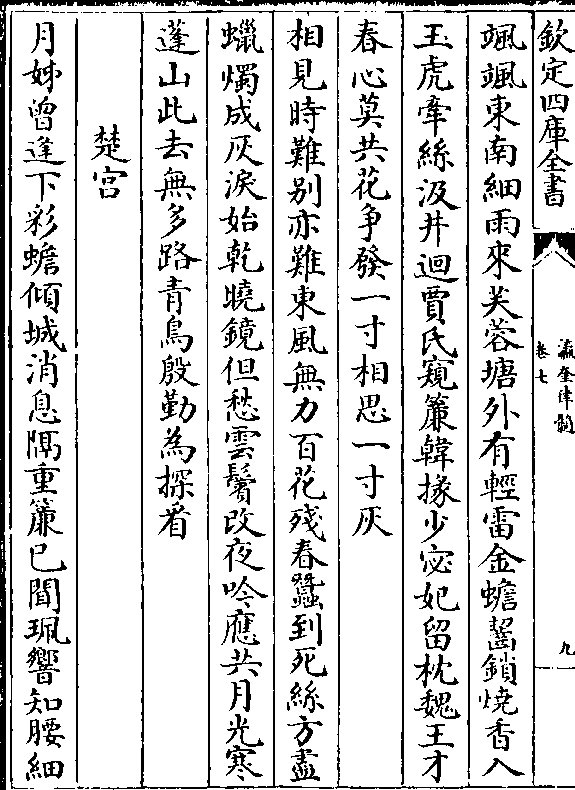 欽定四庫全書
瀛奎律髓
卷七
九
颯颯東南細雨來芙蓉塘外有輕雷金蟾齧鎖燒香入
玉虎牽絲汲井迴賈氏窺簾韓掾少宓妃留枕魏王才
春心莫共花争發一寸相思一寸灰
相見時難别亦難東風無力百花殘春蠶到死絲方盡
蠟燭成灰淚始乾曉鏡但愁雲鬢改夜吟應共月光寒
蓬山此去無多路青鳥殷勤為探看
楚宫
月姊曾逢下彩蟾傾城消息隔重簾已聞珮響知腰細